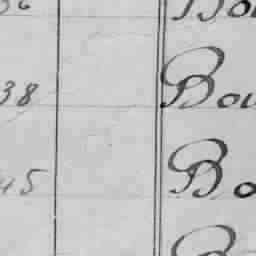 36 Bou
38 Bou
45 Bo